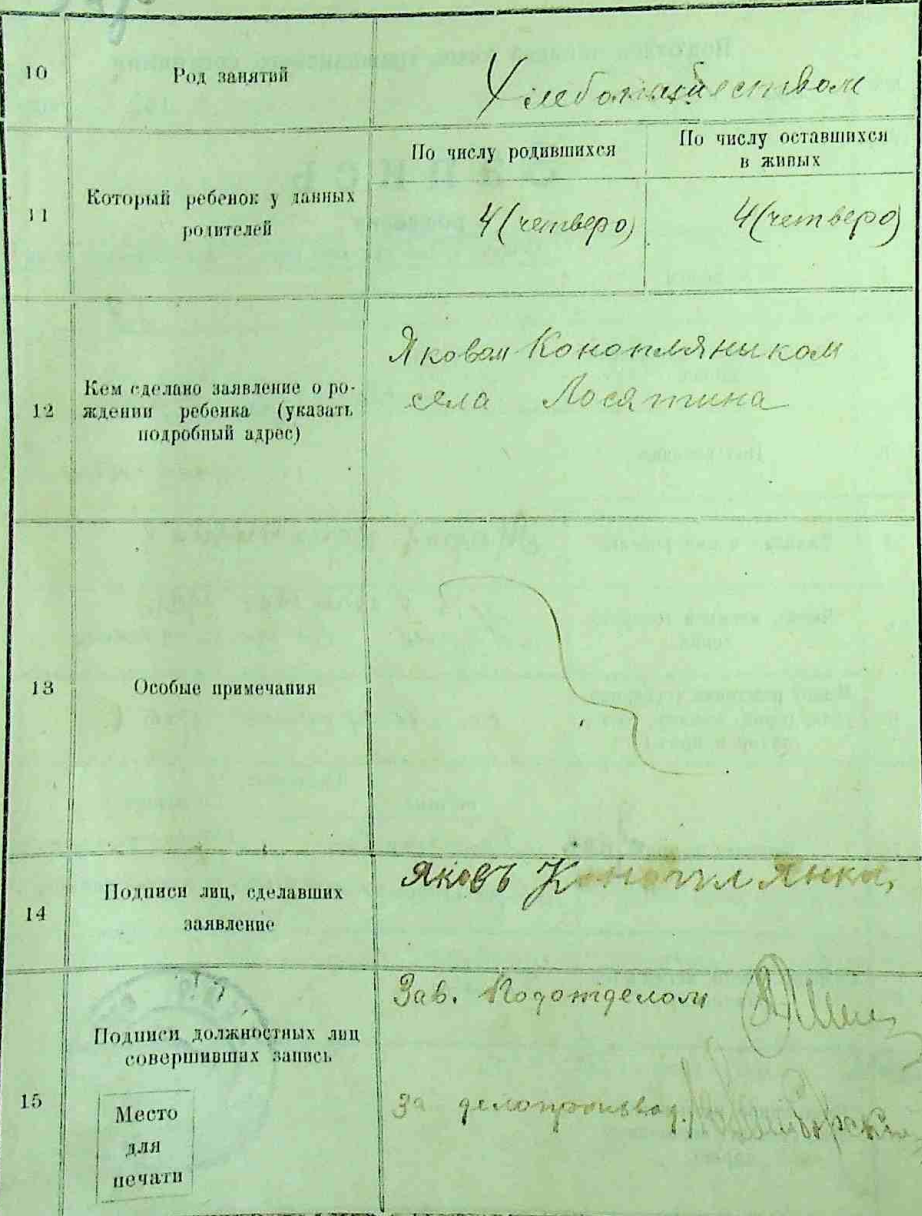 10 Род занятий Хлебопашеством
11 Который ребенок у данных родителей
По числу родившихся
По числу оставшихся в живых
4 (четверо)
4 (четверо)
12 Кем сделано заявление о рождении ребенка (указать подробный адрес)
Яковом Конопляником
села Лосятина
13 Особые примечания
14 Подписи лиц, сделавших заявление
Яковъ
15 Подписи должностных лиц совершивших запись
Место
для
печати
Зав. Подотделом
За делопроизвод.